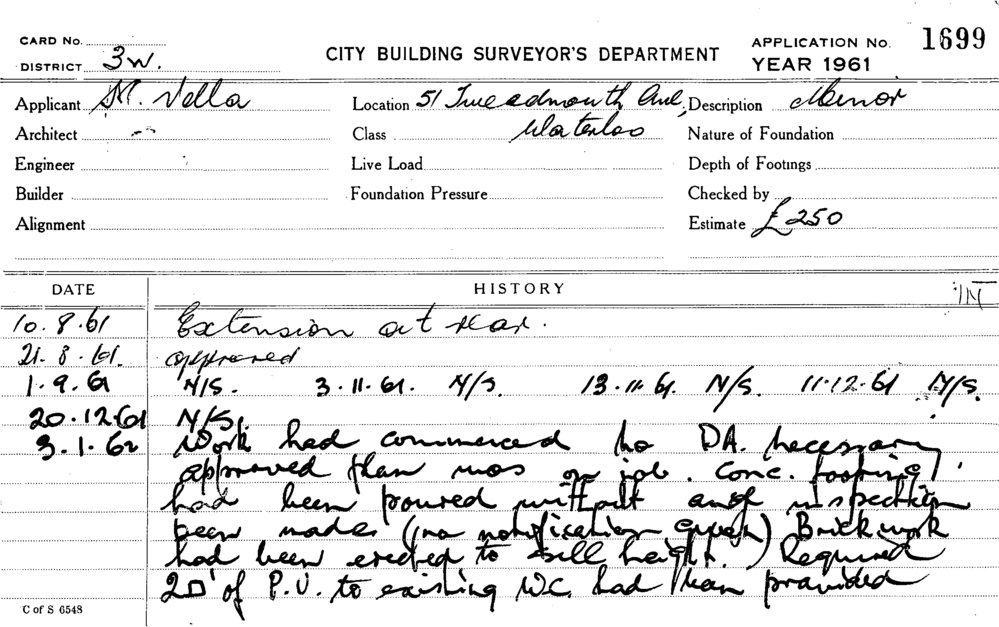 CARD No.
DISTRICT 3W.
CITY BUILDING SURVEYOR'S DEPARTMENT
APPLICATION No. 1699
YEAR 1961
Applicant M. Vella Location 51 Tweedmouth Ave, Description Minor
Architect -- Class Waterloo Nature of Foundation
Engineer Live Load Depth of Footings
Builder Foundation Pressure Checked by
Alignment Estimate £250
DATE HISTORY
10.8.61 Extension at rear.
21.8.61. approved
1.9.61 N/S. 3.11.61. N/S. 13.11.61. N/S. 11.12.61 N/S.
20.12.61 N/S.
3.1.62 Work had commenced no DA. necessary
approved plan was on job. Conc. footings
had been poured without any inspection
been made (no notification given) Brickwork
had been erected to sill height.) Required
2□' of P.V. to existing W.C. had been provided
C of S 6548